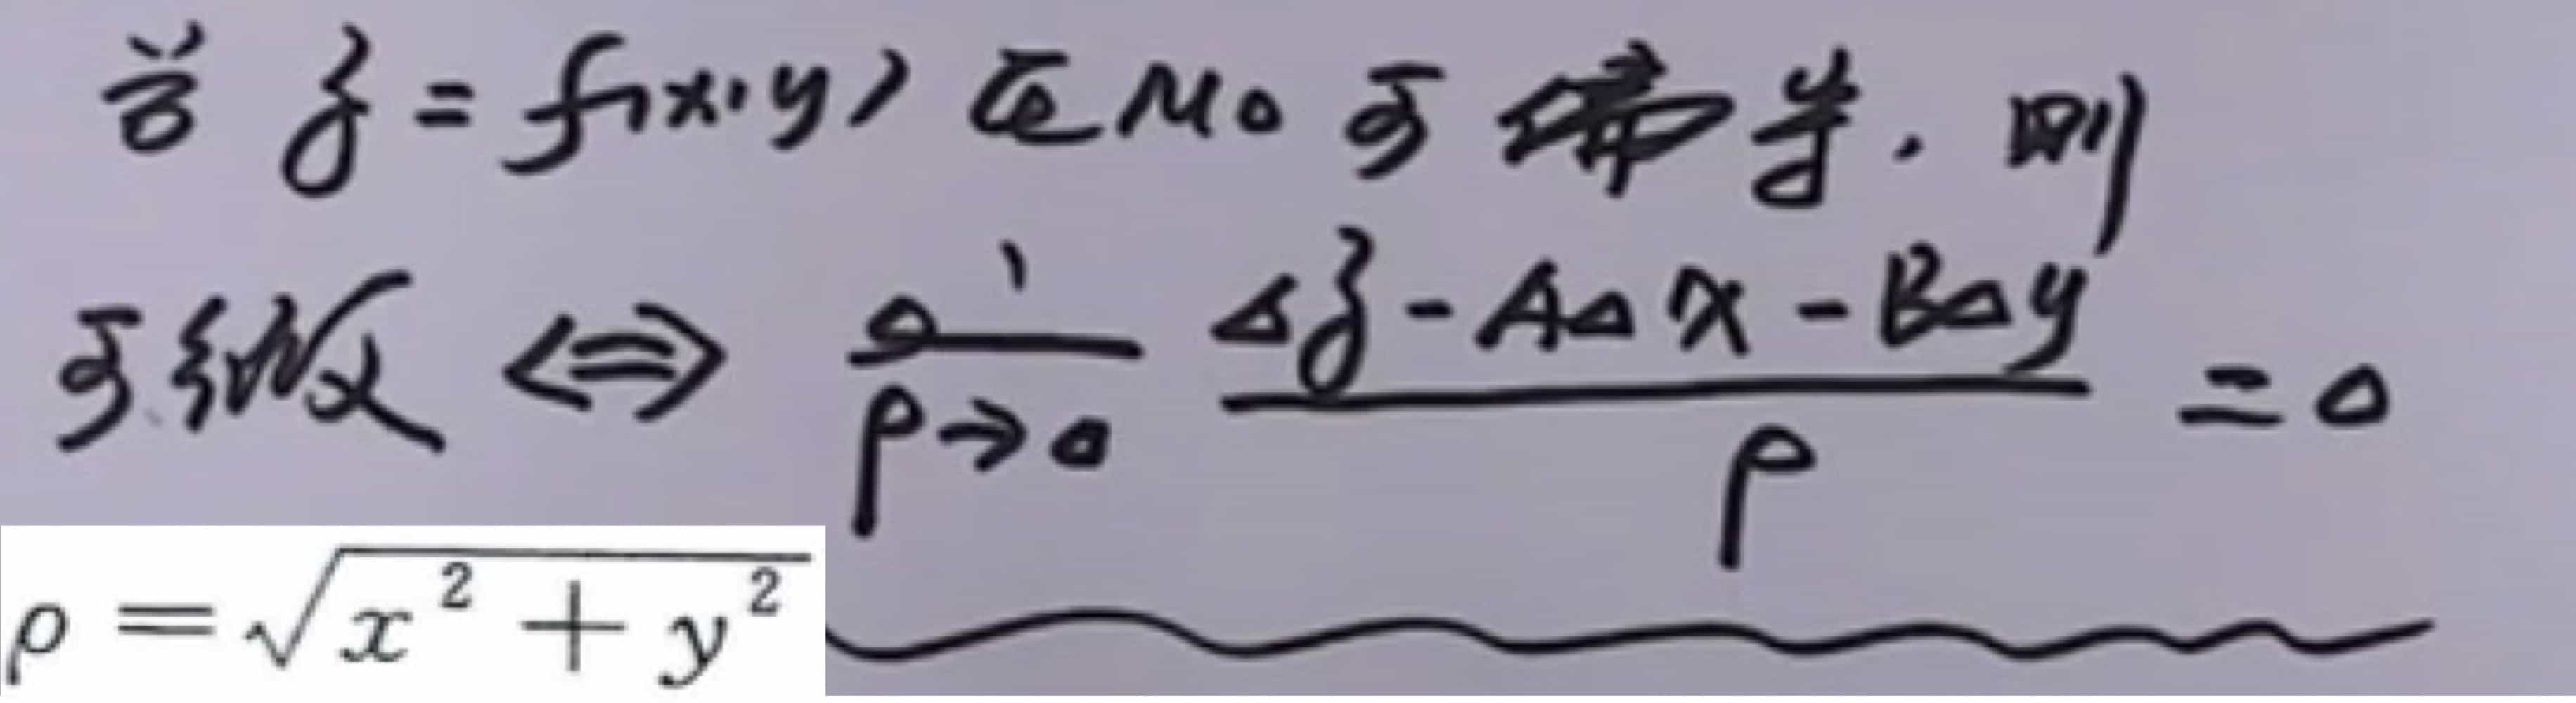 若 z = f(x,y) 在 M₀ 可偏导, 则
可微 ⟺ lim_{ρ→0} (Δz - AΔx - BΔy)/ρ = 0
ρ = √(x² + y²)